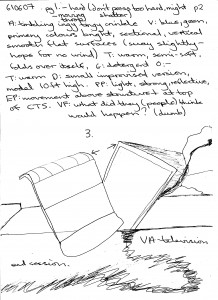 610607 . pg1. - hard (don't peg too hard, might p2
moving shatter)
A: tinkling zigg tangs crinkle V: blue, green,
primary colours, bright, sectional, vertical
smooth flat surfaces (sway slightly -
hope for no wind) T: warm, semi-soft,
folds over itself, G: detergend O: -
T: warm D: small improvised version,
model 10ft high. PP: light, strong, reflective,
EP: movement above structure at top
of CTS. VP: what did they (people) think
would happen? (dumb)
3.
VA - television
end session.